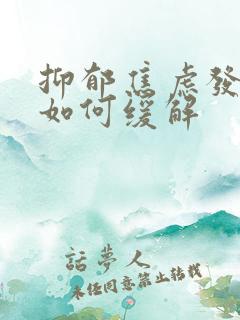 抑郁焦虑發
如何缓解
話夢人
未经同意禁止转载